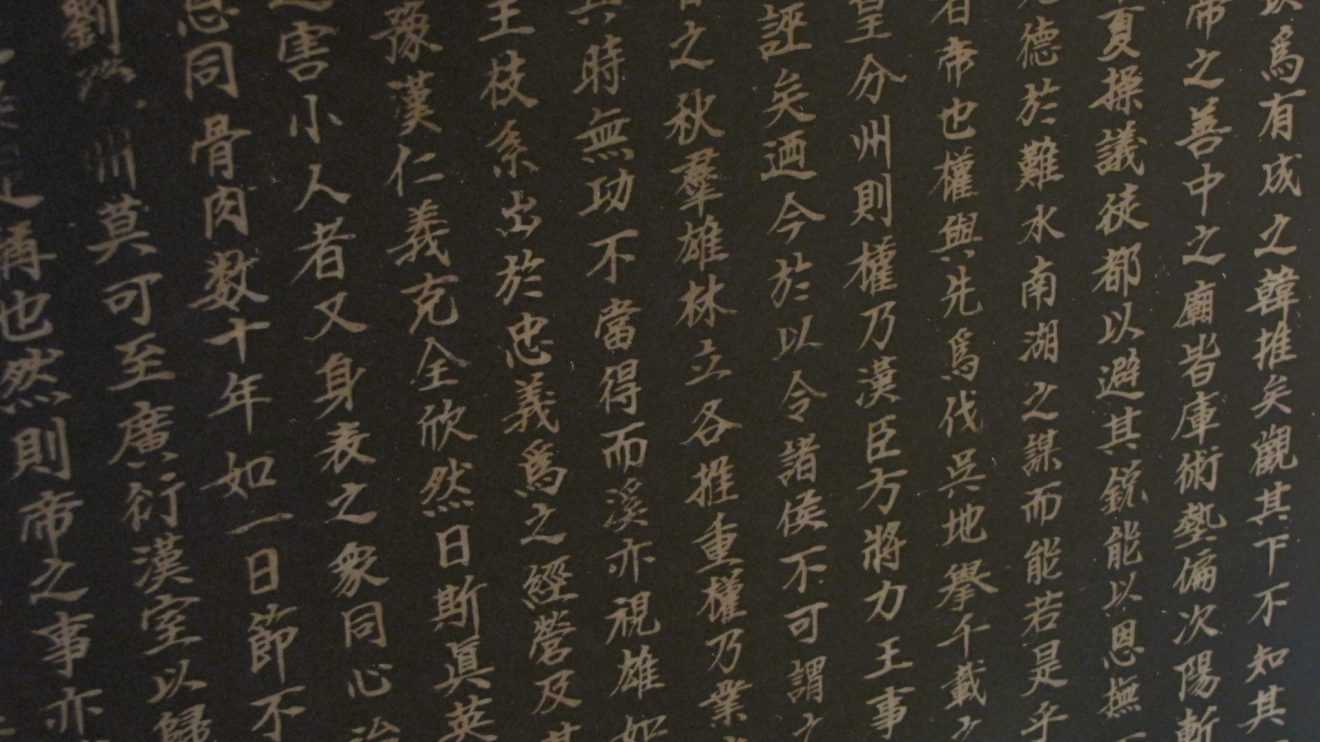 為有成之韓推矣觀其下不知其
帝之善中之廟皆庫術藝偏次陽斬
夏操議徒都以避其銳能以恩撫
德於難水南湖之謀而能若是乎
者帝也權與先為伐吳地舉千載
皇分州則權乃漢臣方將力王事
誣矣迺今於以令諸侯不可謂之
之秋羣雄林立各推重權乃業
其時無功不當得而溪亦視雄如
王枝系出於忠義為之經營及其
豫漢仁義克全欣然曰斯真英
之害小人者又身表之象同心治
忠同骨肉数十年如一日節不
劉 州莫可至廣衍漢室以歸
稱也然則帝之事亦